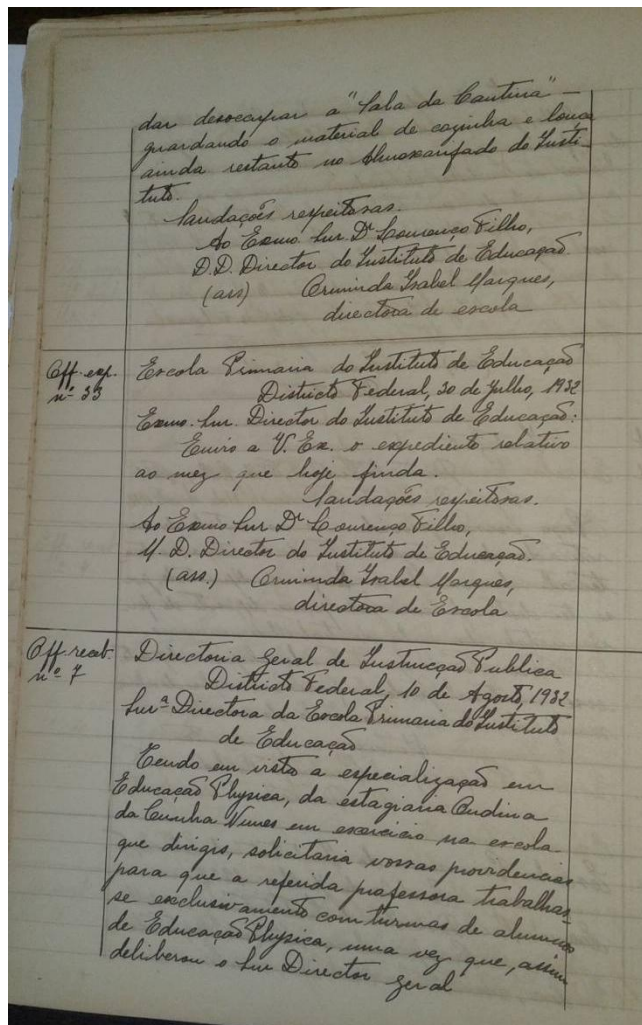 dar desoccupar a "Sala da Cantina" –
guardando o material de cozinha e louça
ainda restante no Almoxarifado do Insti-
tuto.
Saudações respeitosas.
Ao Exmo Snr. Dr Lourenço Filho,
D.D. Director do Instituto de Educação.
(ass) Orminda Isabel Marques,
directora de escola
Off. exp.
nº 33
Escola Primaria do Instituto de Educação
Districto Federal, 30 de Julho, 1932
Exmo. Snr. Director do Instituto de Educação:
Envio a V. Ex. o expediente relativo
ao mez que hoje finda.
Saudações respeitosas.
Ao Exmo Snr Dr Lourenço Filho,
M. D. Director do Instituto de Educação.
(ass.) Orminda Isabel Marques,
directora de Escola
Off. receb.
nº 7
Directoria Geral de Instrucção Publica
Districto Federal, 10 de Agosto, 1932
Snrª Directora da Escola Primaria do Instituto
de Educação
Tendo em vista a especialização em
Educação Physica, da estagiaria Ondina
da Cunha Nunes em exercicio na escola
que dirigis, solicitaria vossas providencias
para que a referida professora trabalhas-
se exclusivamente com turmas de alumnos
de Educação Physica, uma vez que, assim
deliberou o Snr Director Geral